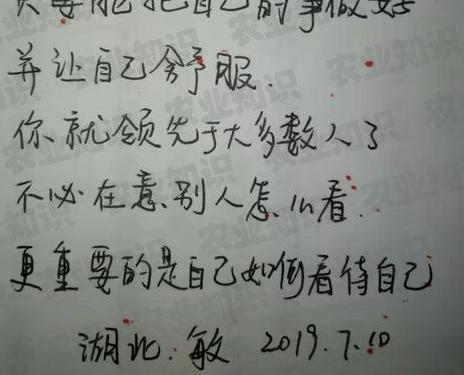 只要能把自己的事做好
并让自己舒服.
你就领先于大多数人了
不必在意、别人怎么看.
更重要的是自己如何看待自己
湖北.敏 2019.7.10